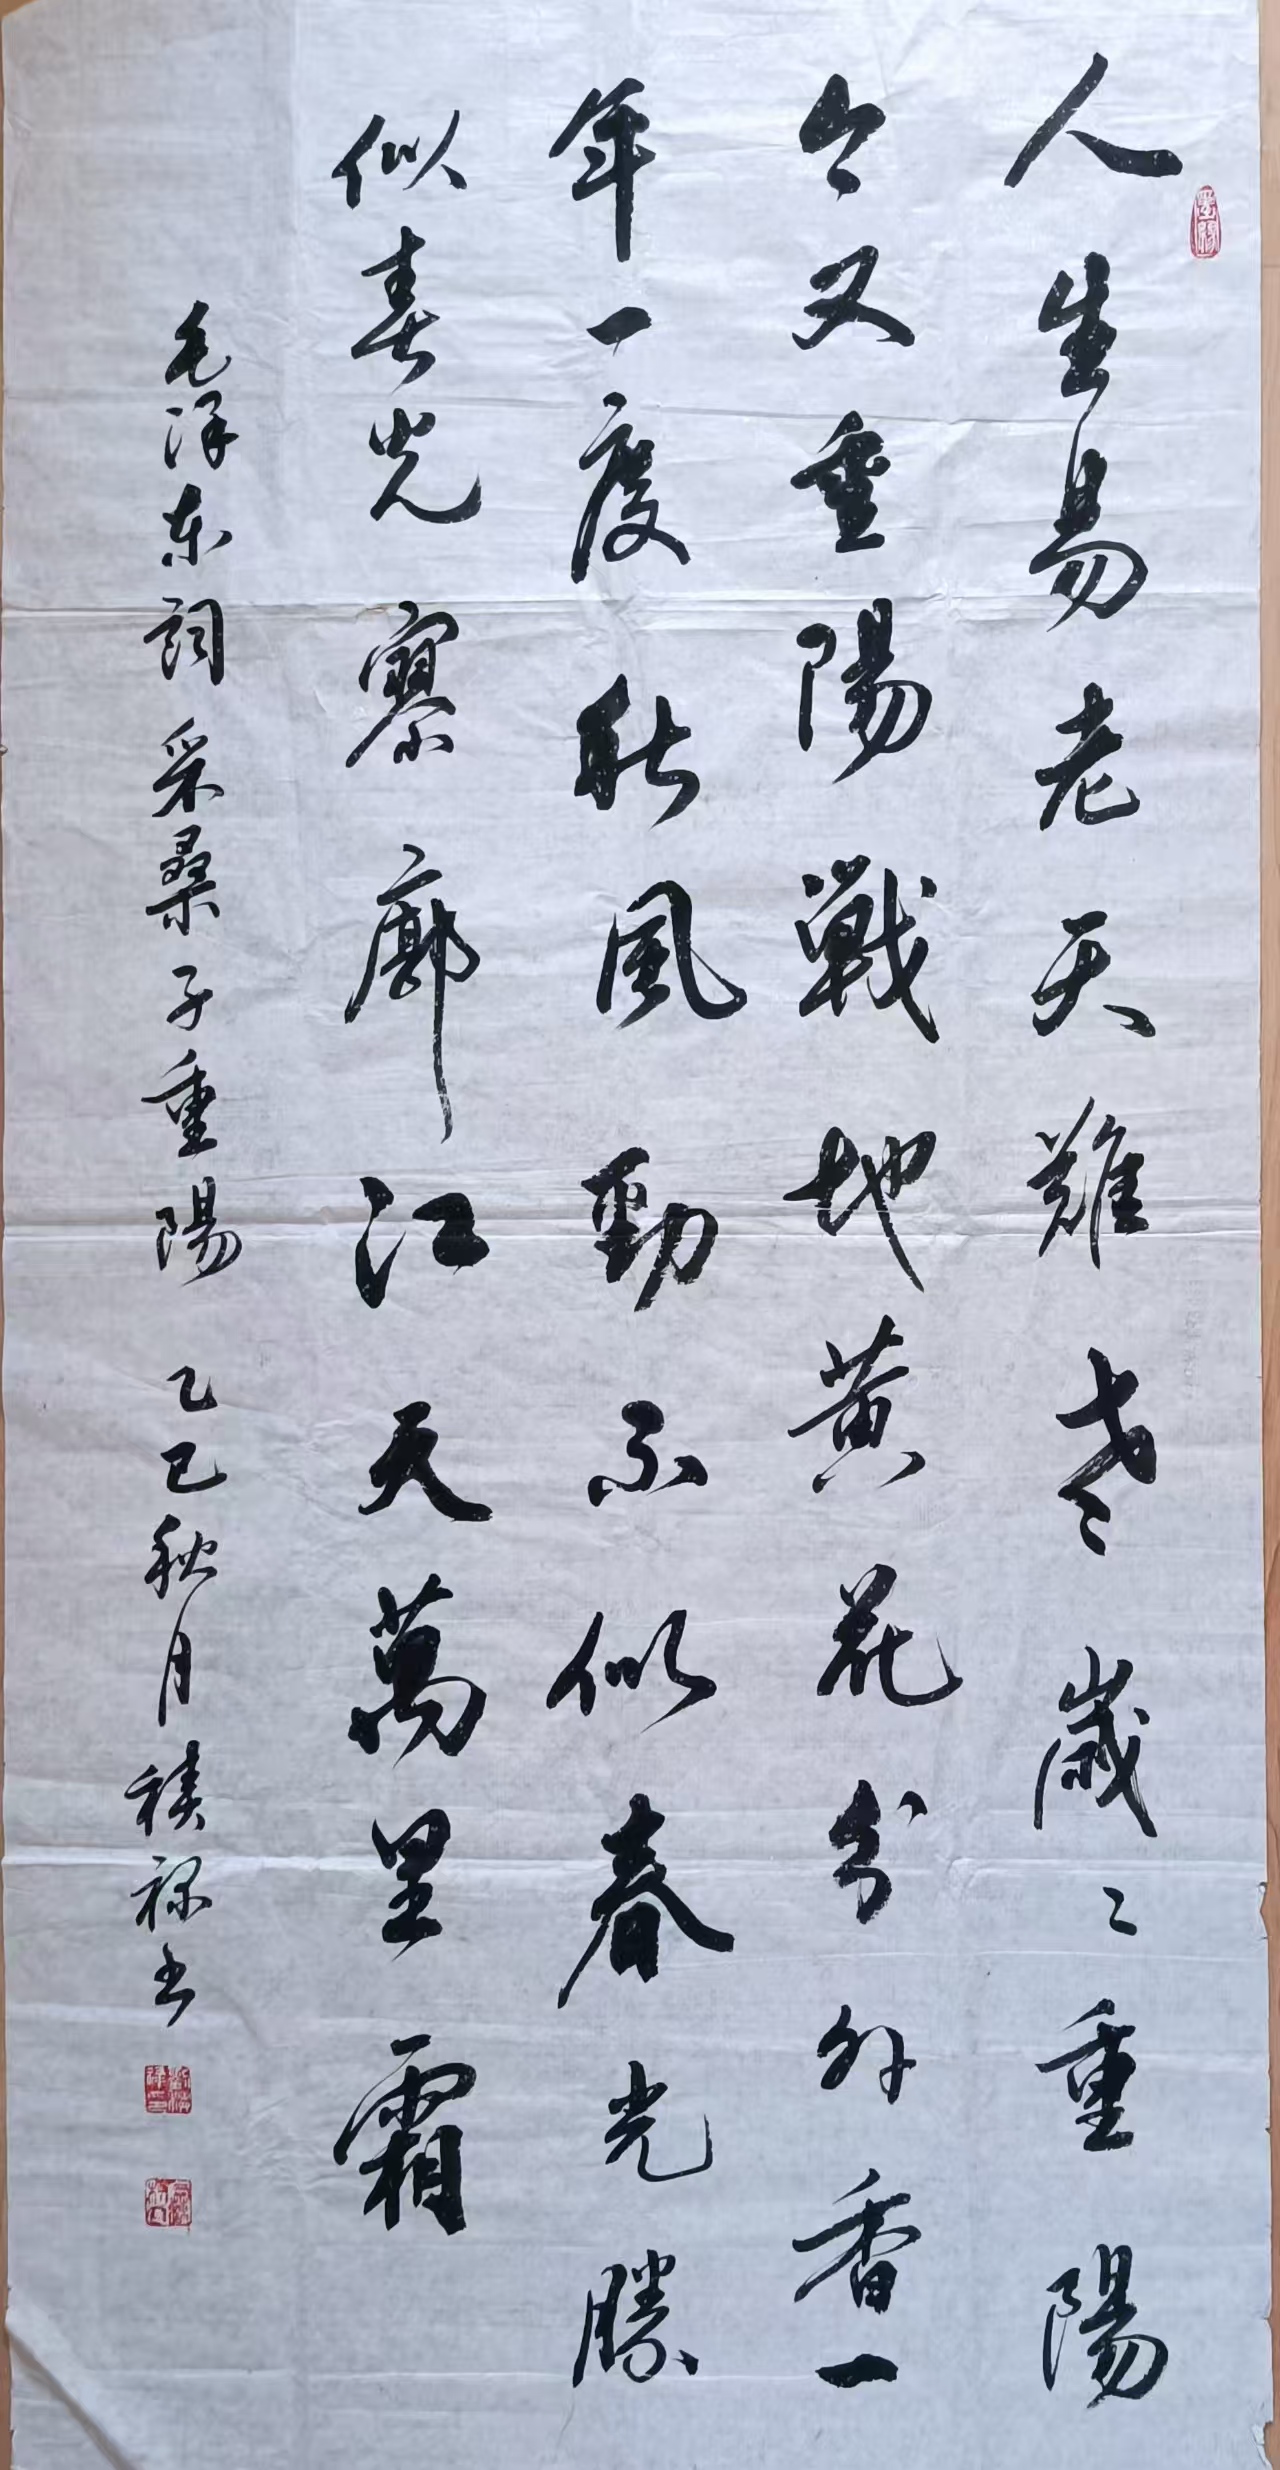 人生易老天難老歲〻重陽
今又重陽戰地黃花分外香一
年一度秋風勁不似春光勝
似春光寥廓江天萬里霜
毛泽东詞采桑子重陽 乙巳秋月祿书